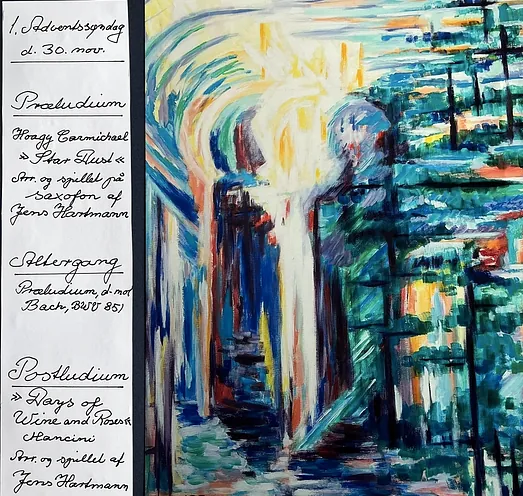 1. Adventssøndag
d. 30. nov.
Præludium
Hoagy Carmichael
» Star Dust «
Arr. og spillet på
saxofon af
Jens Hartmann
Altergang
Præludium, d-mol
Bach, BWV 851
Postludium
» Days of
Wine and Roses«
Mancini
Arr. og spillet af
Jens Hartmann